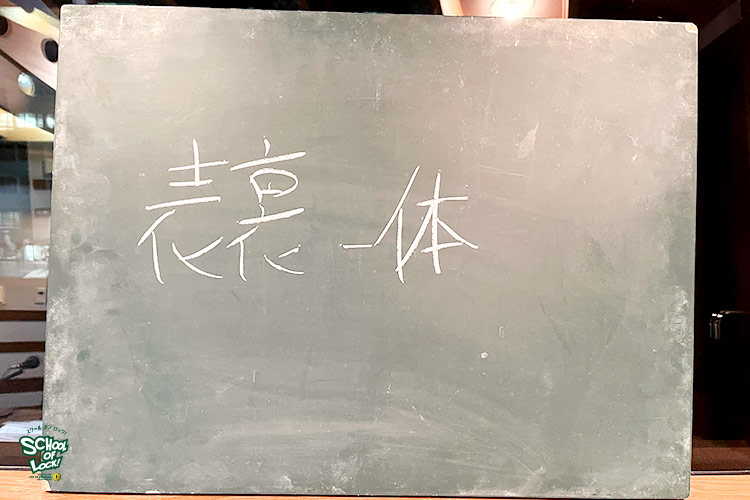 表裏一体
スクールオブロック!
SCHOOL
OF
LOCK!